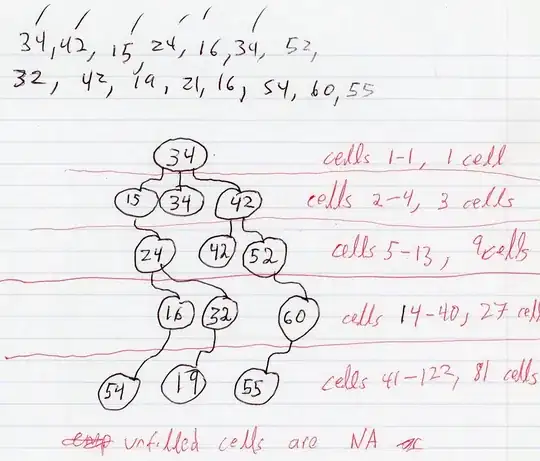 34, 42, 15, 24, 16, 34, 52,
32, 42, 19, 21, 16, 54, 60, 55
34 cells 1-1, 1 cell
15 34 42 cells 2-4, 3 cells
24 42 52 cells 5-13, 9 cells
16 32 60 cells 14-40, 27 cel
54 19 55 cells 41-122, 81 cells
unfilled cells are NA